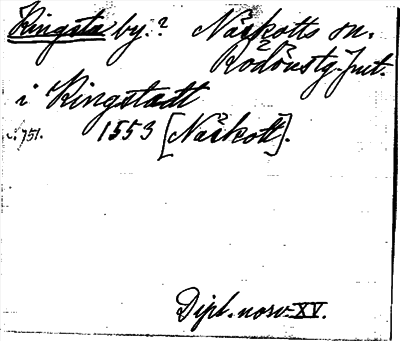 Ringsta by.? Näskotts sn.
Rödönstg. Jmt.
i Ringstadt
s. 751. 1553 [Näskott].
Dipl. norv. XV.